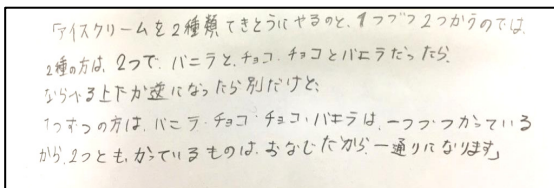 「アイスクリームを2種類てきとうにやるのと、1つづつ2つかうのでは、
2種の方は、2つで、バニラと、チョコ・チョコとバニラだったら、
ならべる上下が逆になったら別だけど、
1つずつの方は、バニラ・チョコ・チョコ・バニラは、一つづつかっている
から、2つとも、かっているものは、おなじだから、一通りになります」